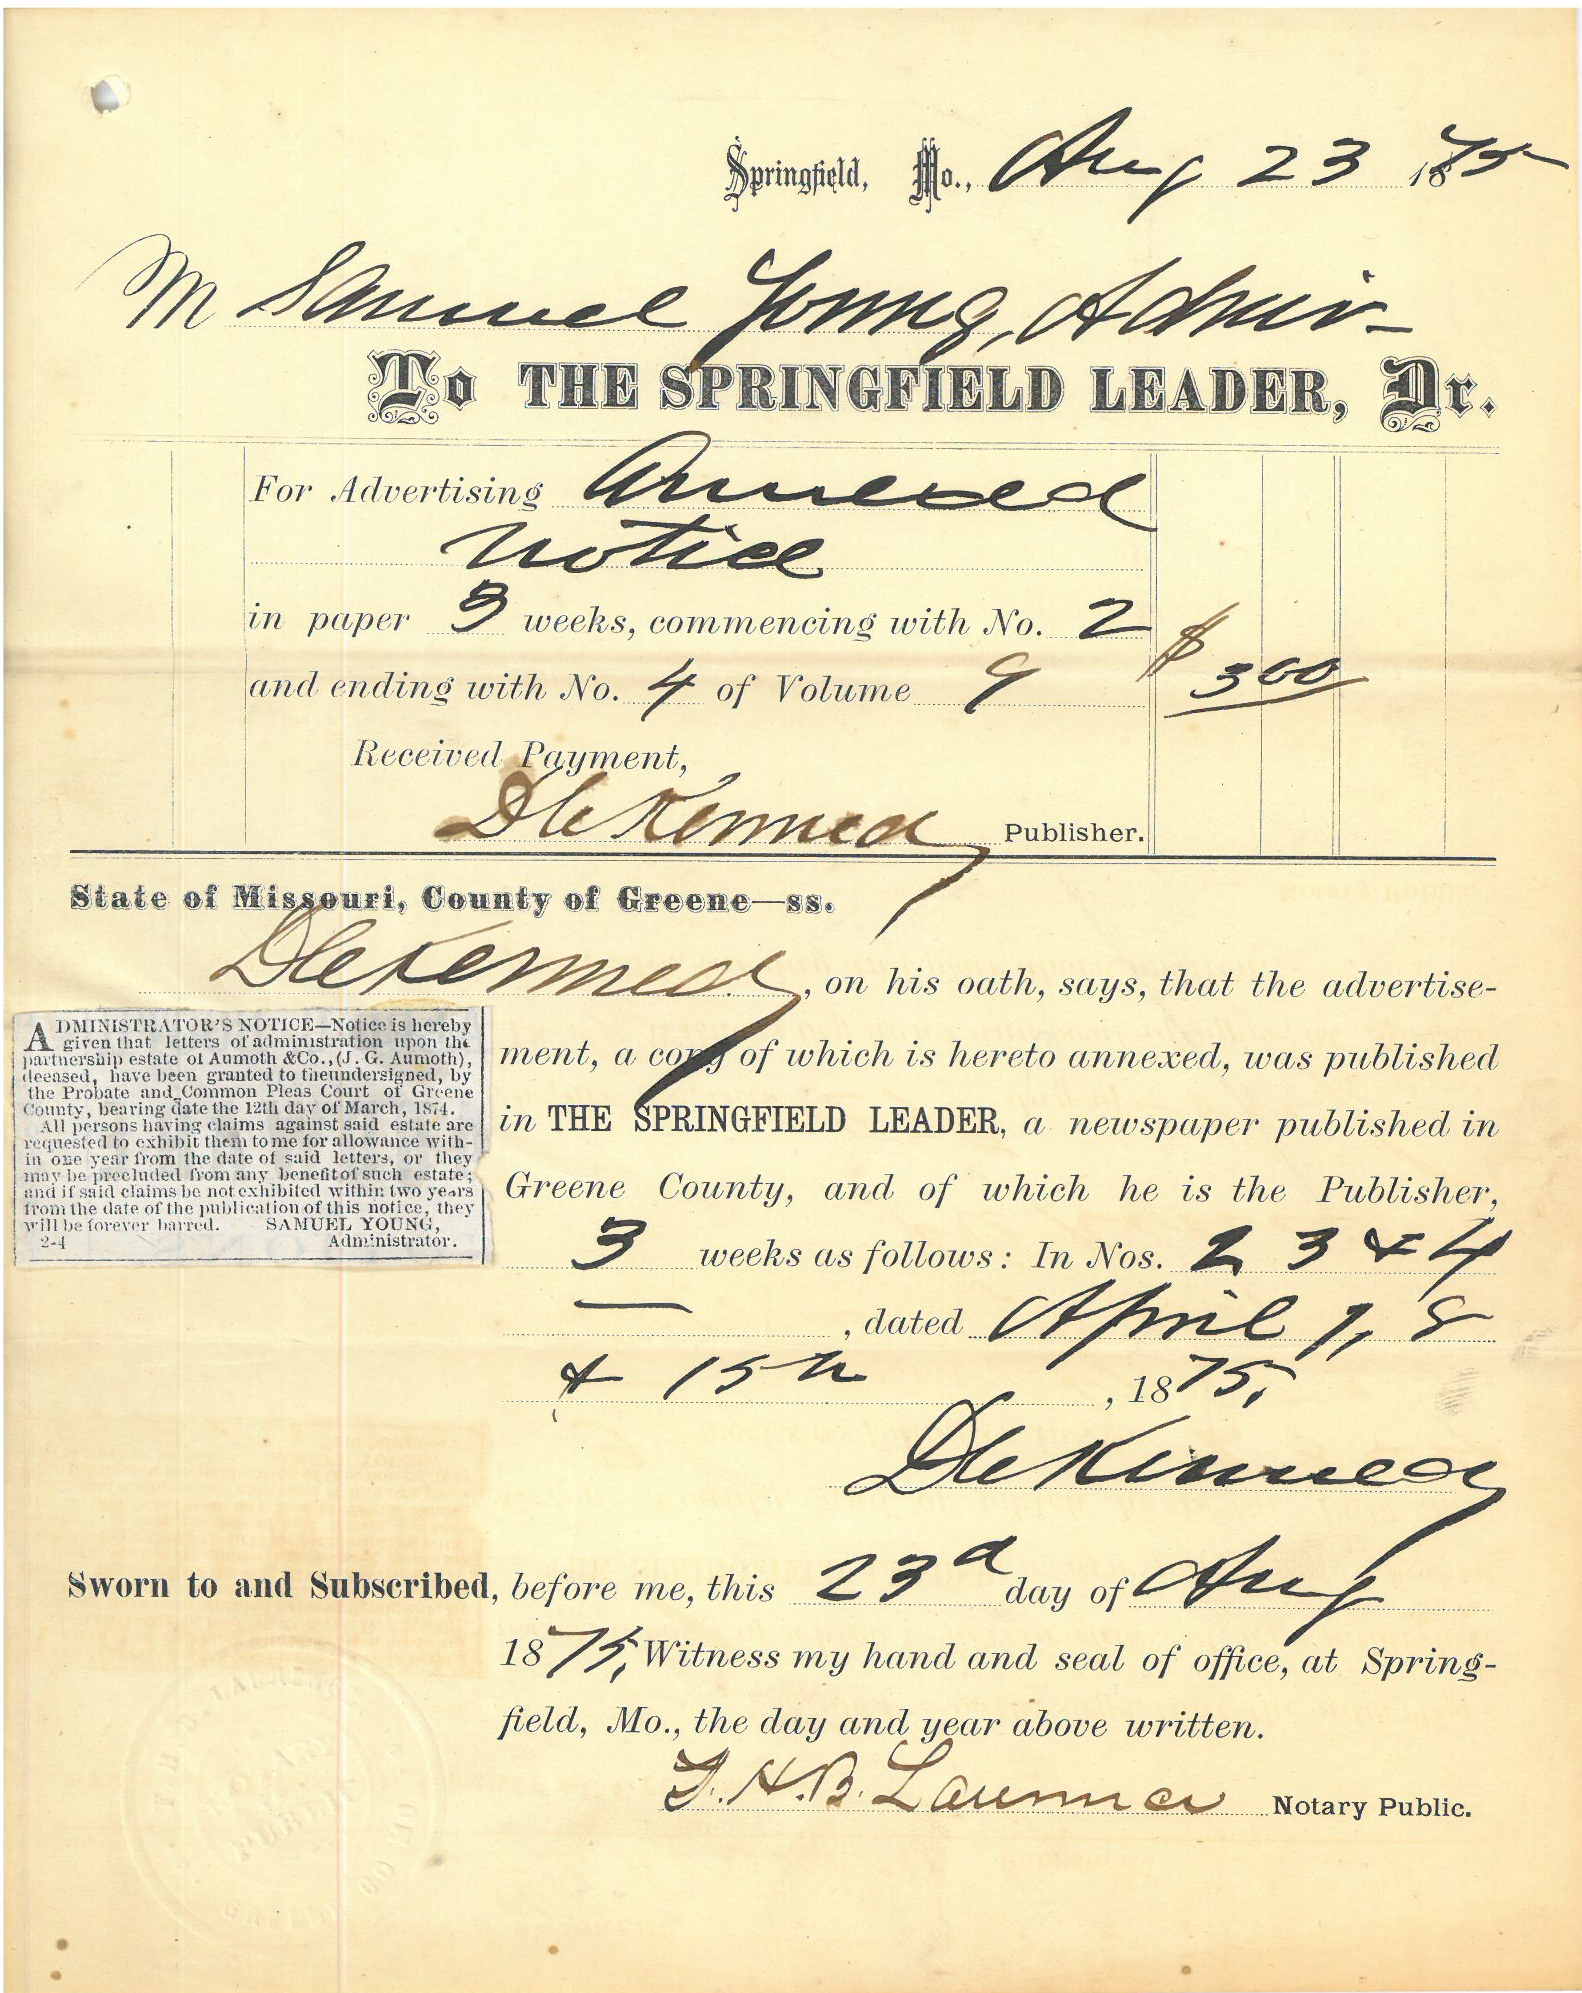 Springfield, Mo., Aug 23 1875
M Samuel Young, Admir-
To THE SPRINGFIELD LEADER, Dr.
For Advertising Annexed
Notice
in paper 3 weeks, commencing with No. 2
and ending with No. 4 of Volume 9 $ 3 00
Received Payment,
D C Kennedy Publisher.
State of Missouri, County of Greene—ss.
D C Kennedy, on his oath, says, that the advertise-
ment, a copy of which is hereto annexed, was published
in THE SPRINGFIELD LEADER, a newspaper published in
Greene County, and of which he is the Publisher,
3 weeks as follows: In Nos. 2 3 & 4
, dated April 1, 8
& 15th, 1875,
D C Kennedy
ADMINISTRATOR'S NOTICE—Notice is hereby
given that letters of administration upon the
partnership estate of Aumoth &Co., (J. G. Aumoth),
deceased, have been granted to theundersigned, by
the Probate and Common Pleas Court of Greene
County, bearing date the 12th day of March, 1874.
All persons having claims against said estate are
requested to exhibit them to me for allowance with-
in one year from the date of said letters, or they
may be precluded from any benefit of such estate;
and if said claims be not exhibited within two years
from the date of the publication of this notice, they
will be forever barred. SAMUEL YOUNG,
2-4 Administrator.
Sworn to and Subscribed, before me, this 23d day of Aug
1875, Witness my hand and seal of office, at Spring-
field, Mo., the day and year above written.
H. B. Notary Public.